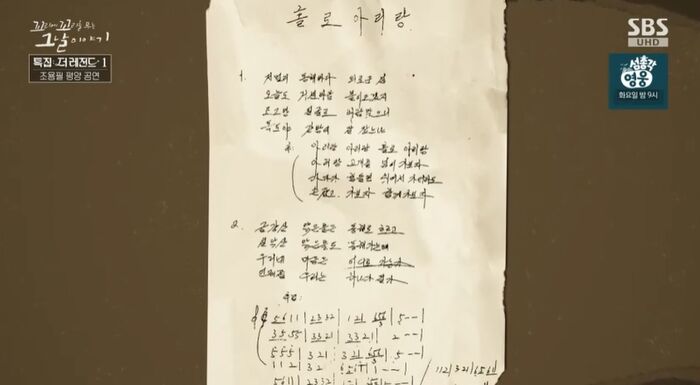 꼬리에 꼬리를 무는
그날 이야기
특집 더 레전드 1
조용필 평양 공연
SBS
UHD
삼총각
영웅
화요일 밤 9시
홀로 아리랑
1. 저멀리 동해바다 외로운 섬
오늘도 거센바람 불어오겠지
조그만 얼굴로 바람맞으니
독도야 간밤에 잘 잤느냐
아리랑 아리랑 홀로 아리랑
아리랑 고개를 넘어 가보자
가다가 힘들면 쉬어서 가더라도
손잡고 가보자 같이 가보자
2. 금강산 맑은물은 동해로 흐르고
설악산 맑은물도 동해가는데
우리네 마음은 어디로 가는가
언제쯤 우리는 하나가 될까
5 6 1 1 | 2 3 3 2 | 1 2 1 | 5 - - |
3 5 5 5 | 3 3 2 1 | 3 3 2 1 | 2 - - |
5 5 5 | 3 2 1 | 3 2 1 | 5 - - |
1 1 2 1 | 3 2 | 1 - - |
5 6 1 1 | 2 3 3 2